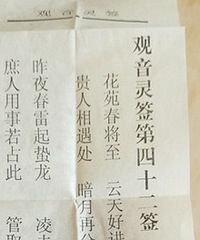 观音灵签
观音灵签第四十二签
花苑春将至 云天好讲
贵人相遇处 暗月再
昨夜春雷起蛰龙 凌
庶人用事若占此 管取